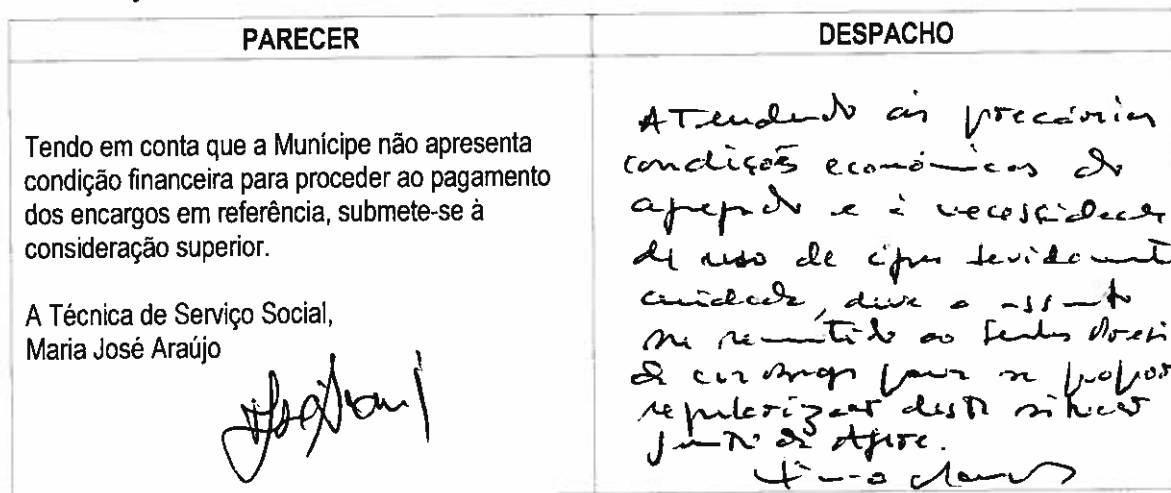 PARECER
DESPACHO
Tendo em conta que a Munícipe não apresenta
condição financeira para proceder ao pagamento
dos encargos em referência, submete-se à
consideração superior.
A Técnica de Serviço Social,
Maria José Araújo
Atendendo às precárias
condições económicas do
agregado e à necessidade
de uso de água devidamente
cuidada, deve o assunto
ser remetido ao Senhor
para se propor
regularizar desta situação
junto da